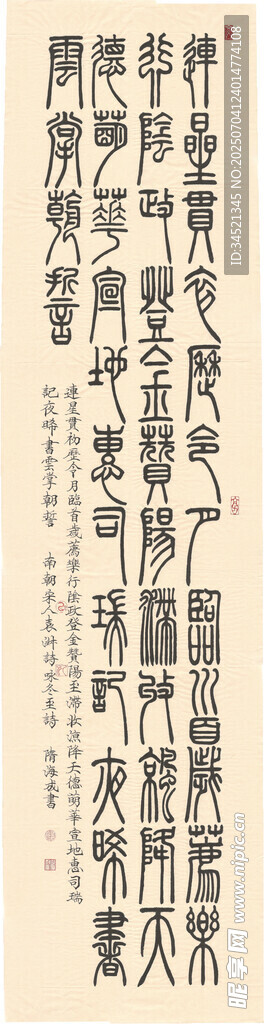 連星貫初歷令月臨首歲薦樂
行陰政登金贊陽滯收涸降天
德萌華宣地惠司瑞記夜晞書
雲掌朝誓
連星貫初歷令月臨首歲薦樂行陰政登金贊陽至滯降天德萌華宣地惠司瑞
記夜晞書雲掌朝誓 南朝宋人袁淑詩咏冬至詩 隋海成書
ID:34521345 NO:20250704124014774108
昵享网 www.nipic.cn